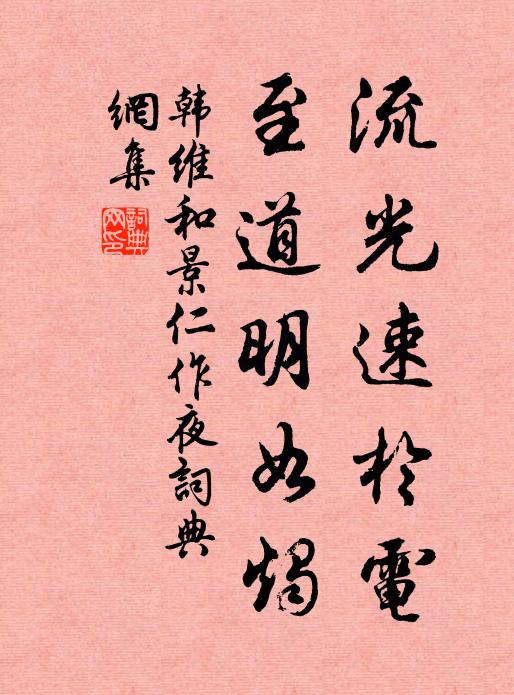 流光速於電
至道明如燭
韩维和景仁作夜詞典
網集
詞典網印